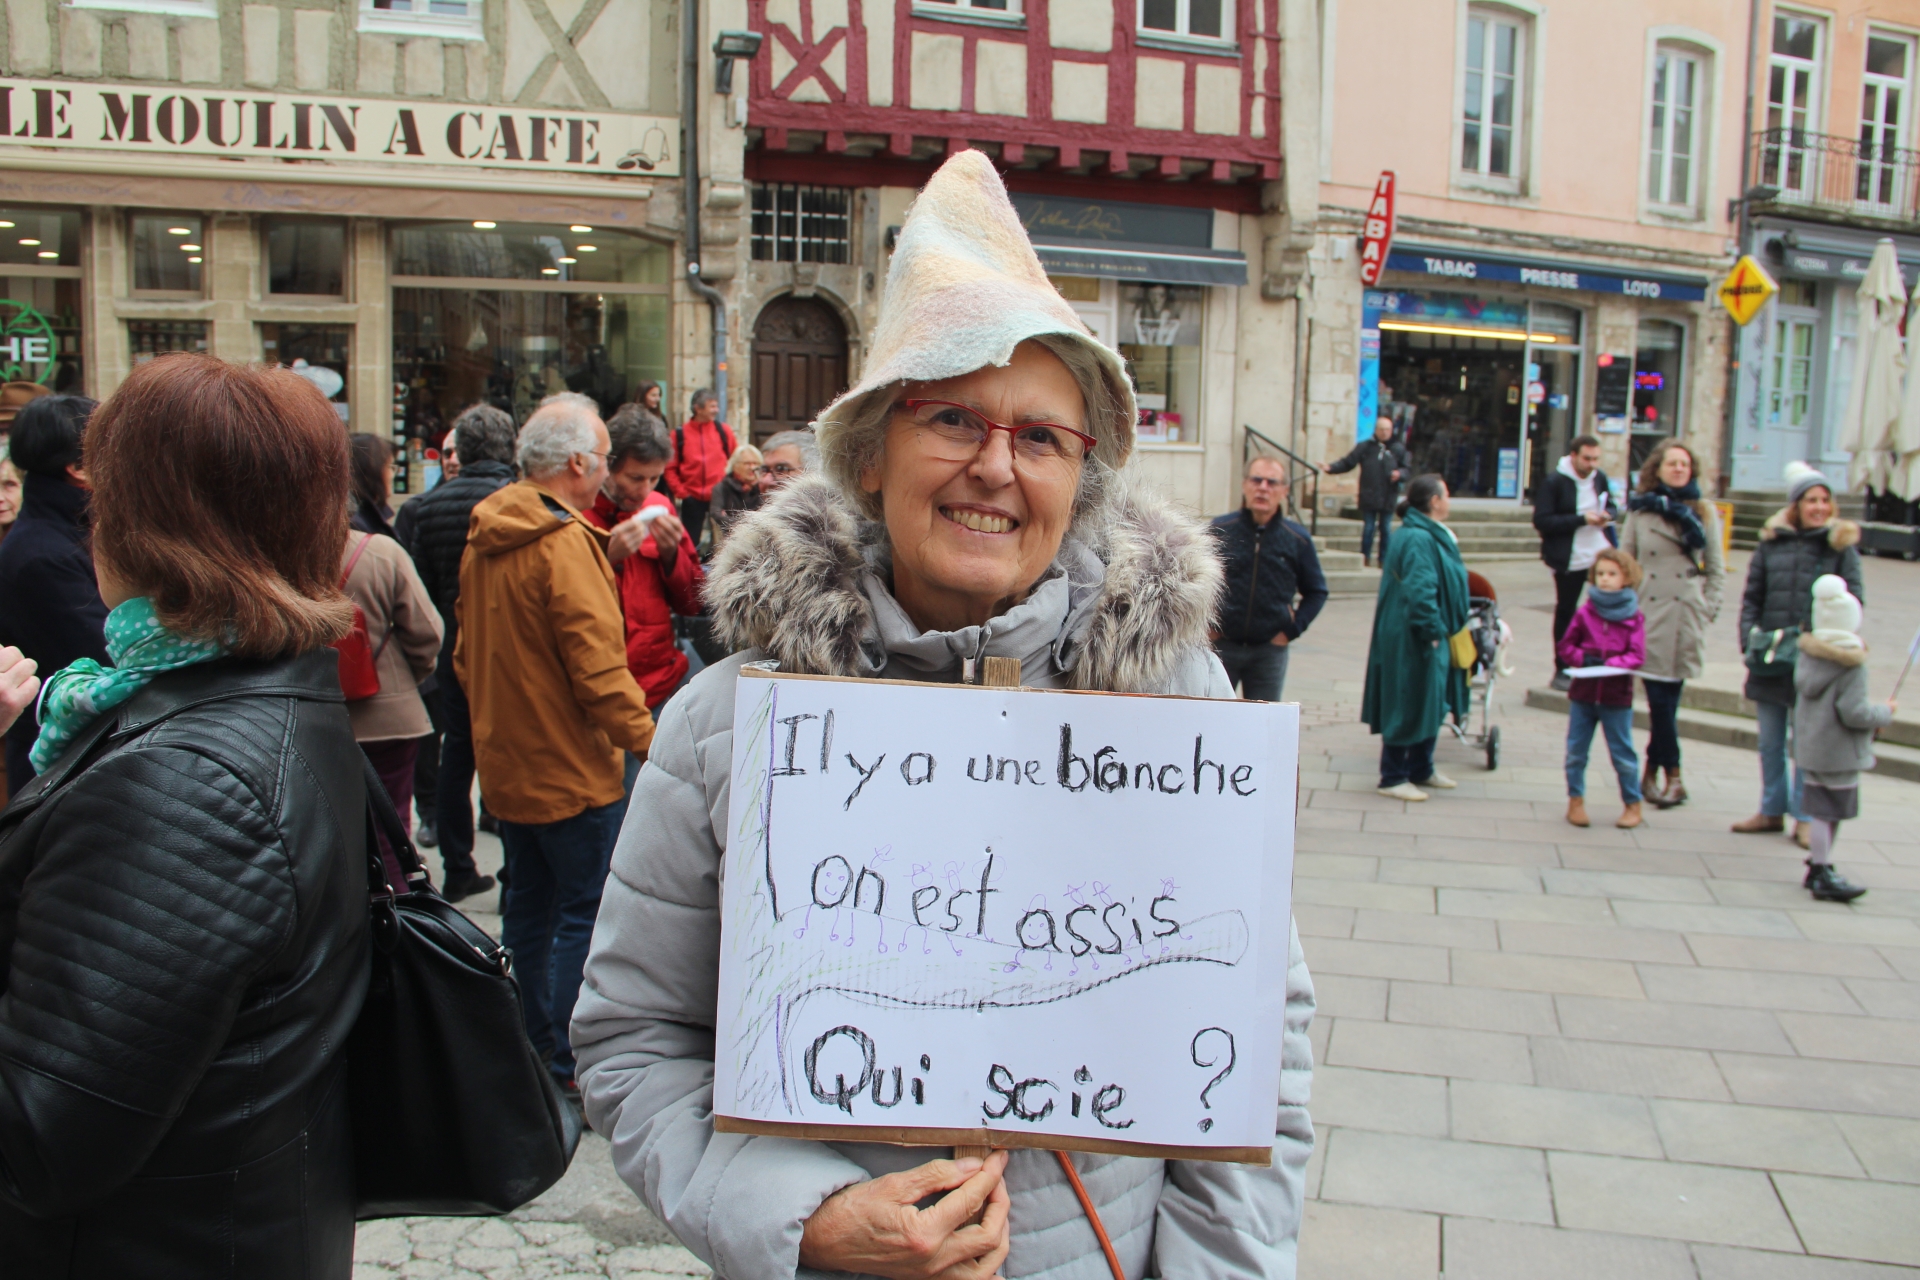 LE MOULIN A CAFE
HE
TABAC
TABAC PRESSE LOTO
PRESSE
Il y a une branche
on est assis
Qui scie ?